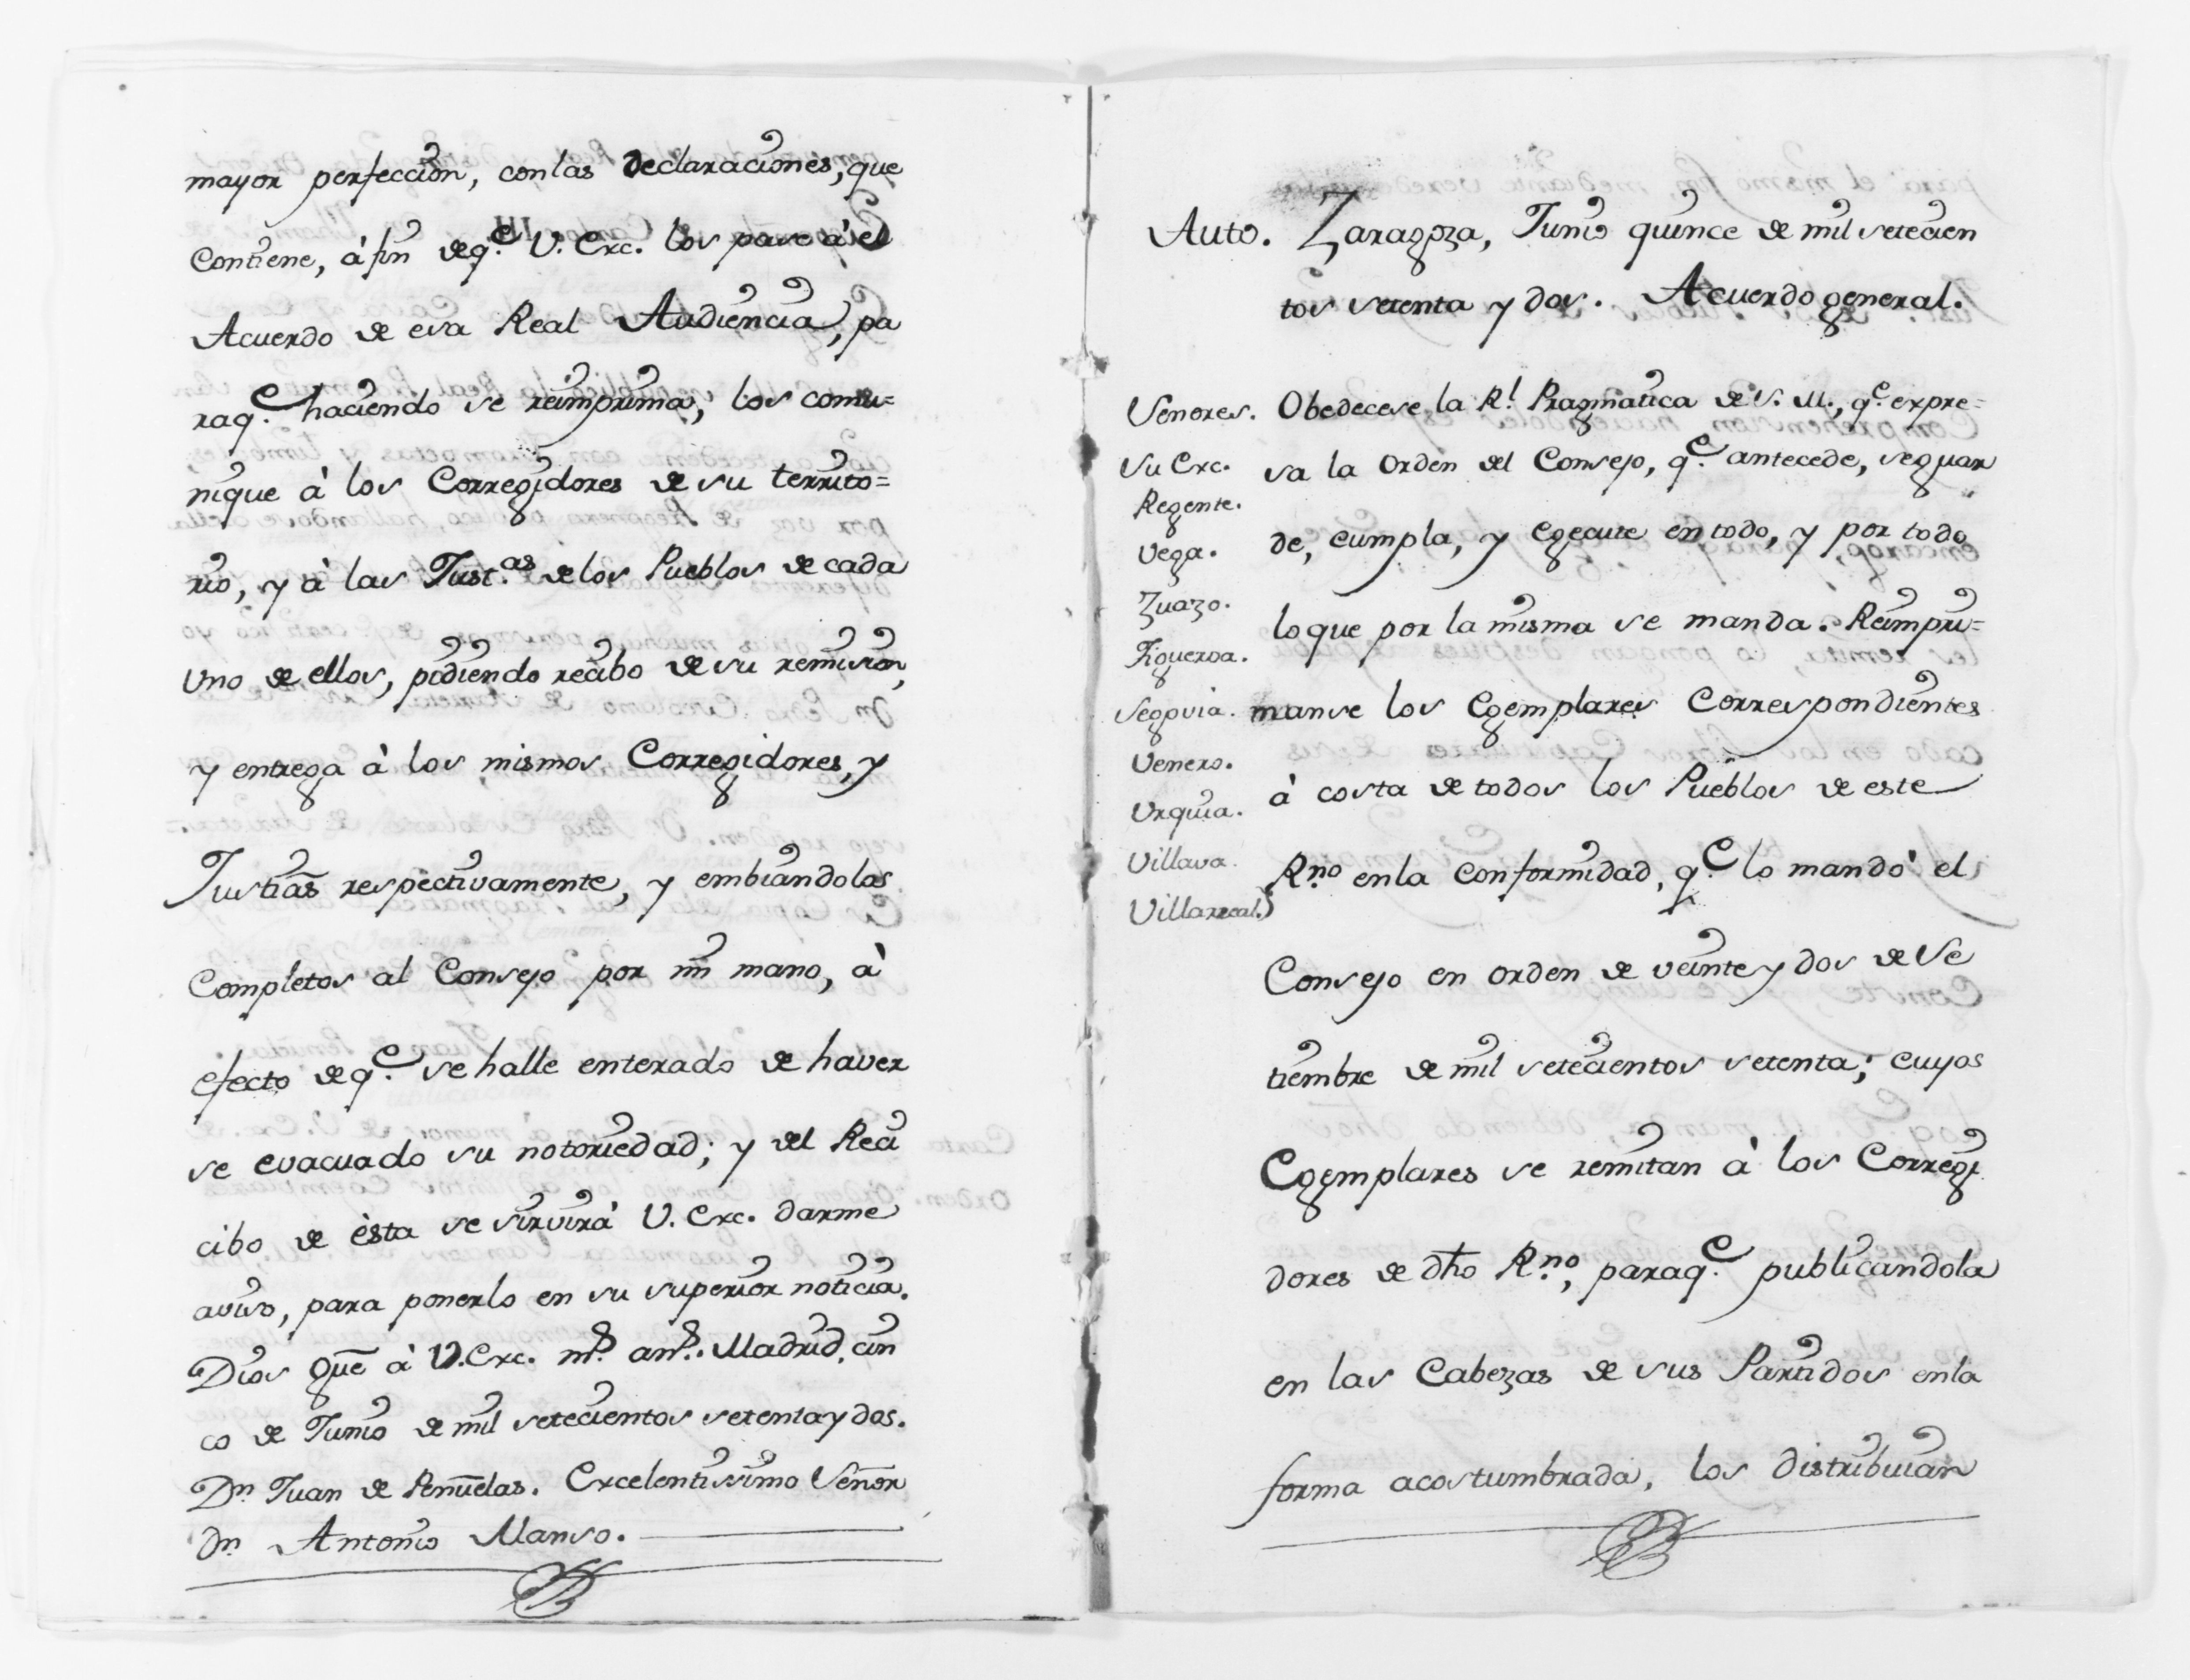 mayor perfeccion, con las declaraciones, que
contiene, à fin de q.e V. Exc. los pase à el
Acuerdo de esa Real Audiencia, pa
raq.e haciendo se reimprima, los comu=
nique à los Corregidores de su territo=
rio, y à las Just.as de los Pueblos de cada
uno de ellos, pidiendo recibo de su remision,
y entrega à los mismos Corregidores, y
Justicias respectivamente, y embiandolos
completos al Consejo por mi mano, à
efecto de q.e se halle enterado de haver
se evacuado su notoriedad; y del Reci
cibo de èsta se servirá V. Exc. darme
aviso, para ponerlo en su superior noticia.
Dios gue à V. Exc. m.s an.s. Madrid, cin
co de Junio de mil setecientos setenta y dos.
Dn Juan de Peñuelas. Excelentissimo Señor
dn Antonio Manso.
Auto. Zaragoza, Junio quince de mil setecien
tos setenta y dos. Acuerdo general.
Senores.
Su Exc.
Regente.
Vega.
Zuazo.
Figueroa.
Segovia.
Venero.
Urquia.
Villava.
Villarreal.
Obedecese la R.l Pragmatica de S. M., q.e expre=
sa la Orden del Consejo, q.e antecede, se guar
de, cumpla, y egecute en todo, y por todo
lo que por la misma se manda. Reimpri=
manse los Egemplares Correspondientes
à costa de todos los Pueblos de este
R.no en la conformidad, q.e lo mandó el
Consejo en orden de veinte y dos de Se
tiembre de mil setecientos setenta; cuyos
Egemplares se remitan à los Corregi
dores de dho R.no, paraq.e publicandola
en las Cabezas de sus Partidos en la
forma acostumbrada, los distribuian